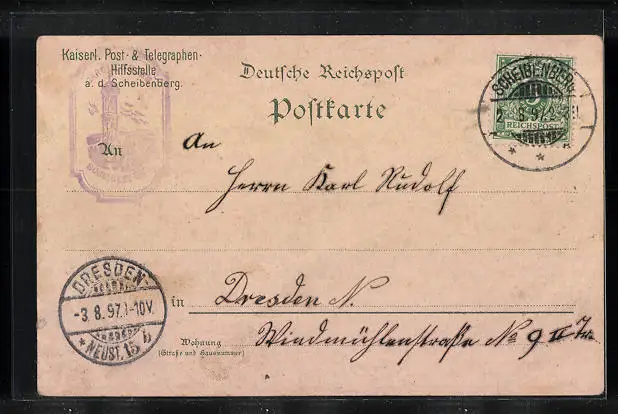 Kaiserl. Post- & Telegraphen-
Hilfsstelle
a. d. Scheibenberg.
Deutsche Reichspost
Postkarte
SCHEIBENBERG
REICHSPOST
An
An
Herrn Karl Rudolf
DRESDEN-
-3. 8. 97. 1-10V.
* NEUST. 15 b
in Dresden N.
Wohnung
(Straße und Hausnummer)
Windmühlenstraße No 9 II